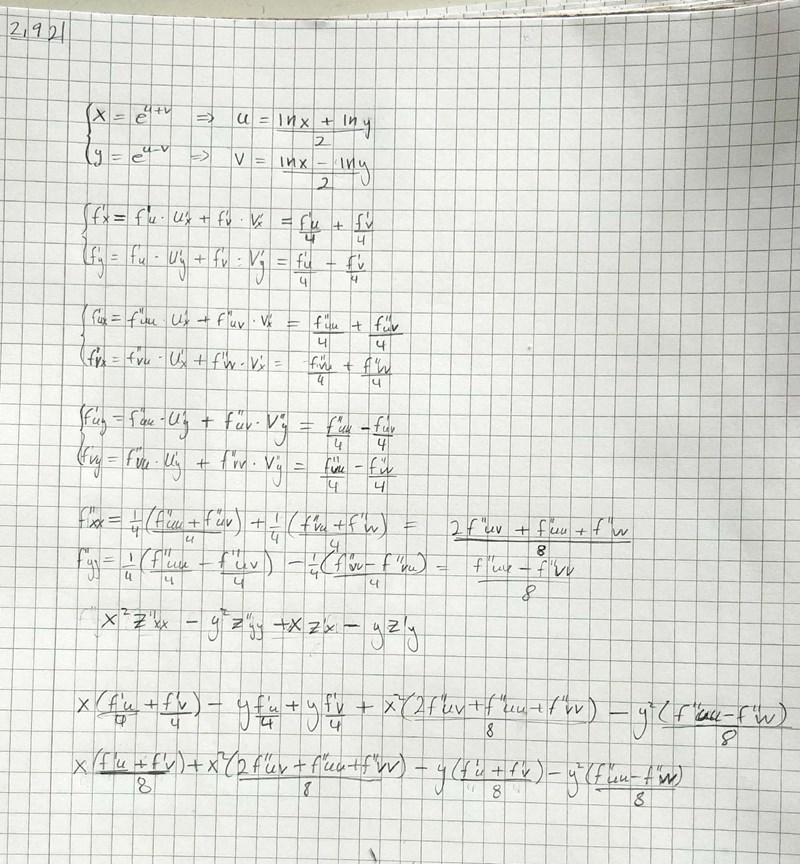 2,92
x = e^{u+v} ⇒ u = (ln x + ln y)/2
y = e^{u-v} ⇒ v = (ln x - ln y)/2
f'x = f'u · U'x + f'v · V'x = f'u/4 + f'v/4
f'y = f'u · U'y + f'v · V'y = f'u/4 - f'v/4
f''ux = f''uu · U'x + f''uv · V'x = f''uu/4 + f''uv/4
f''vx = f''vu · U'x + f''vv · V'x = f''vu/4 + f''vv/4
f''uy = f''uu · U'y + f''uv · V'y = f''uu/4 - f''uv/4
f''vy = f''vu · U'y + f''vv · V'y = f''vu/4 - f''vv/4
f''xx = 1/4 (f''uu + f''uv)/4 + 1/4 (f''vu + f''vv)/4 = (2f''uv + f''uu + f''vv)/8
f''yy = 1/4 (f''uu/4 - f''uv/4) - 1/4 (f''vv - f''vu)/4 = (f''uu - f''vv)/8
x² z''xx - y² z''yy + x z'x - y z'y
x(f'u/4 + f'v/4) - y f'u/4 + y f'v/4 + x² (2f''uv + f''uu + f''vv)/8 - y² (f''uu - f''vv)/8
x (f'u + f'v)/8 + x² (2f''uv + f''uu + f''vv)/8 - y (f'u + f'v)/8 - y² (f''uu - f''vv)/8